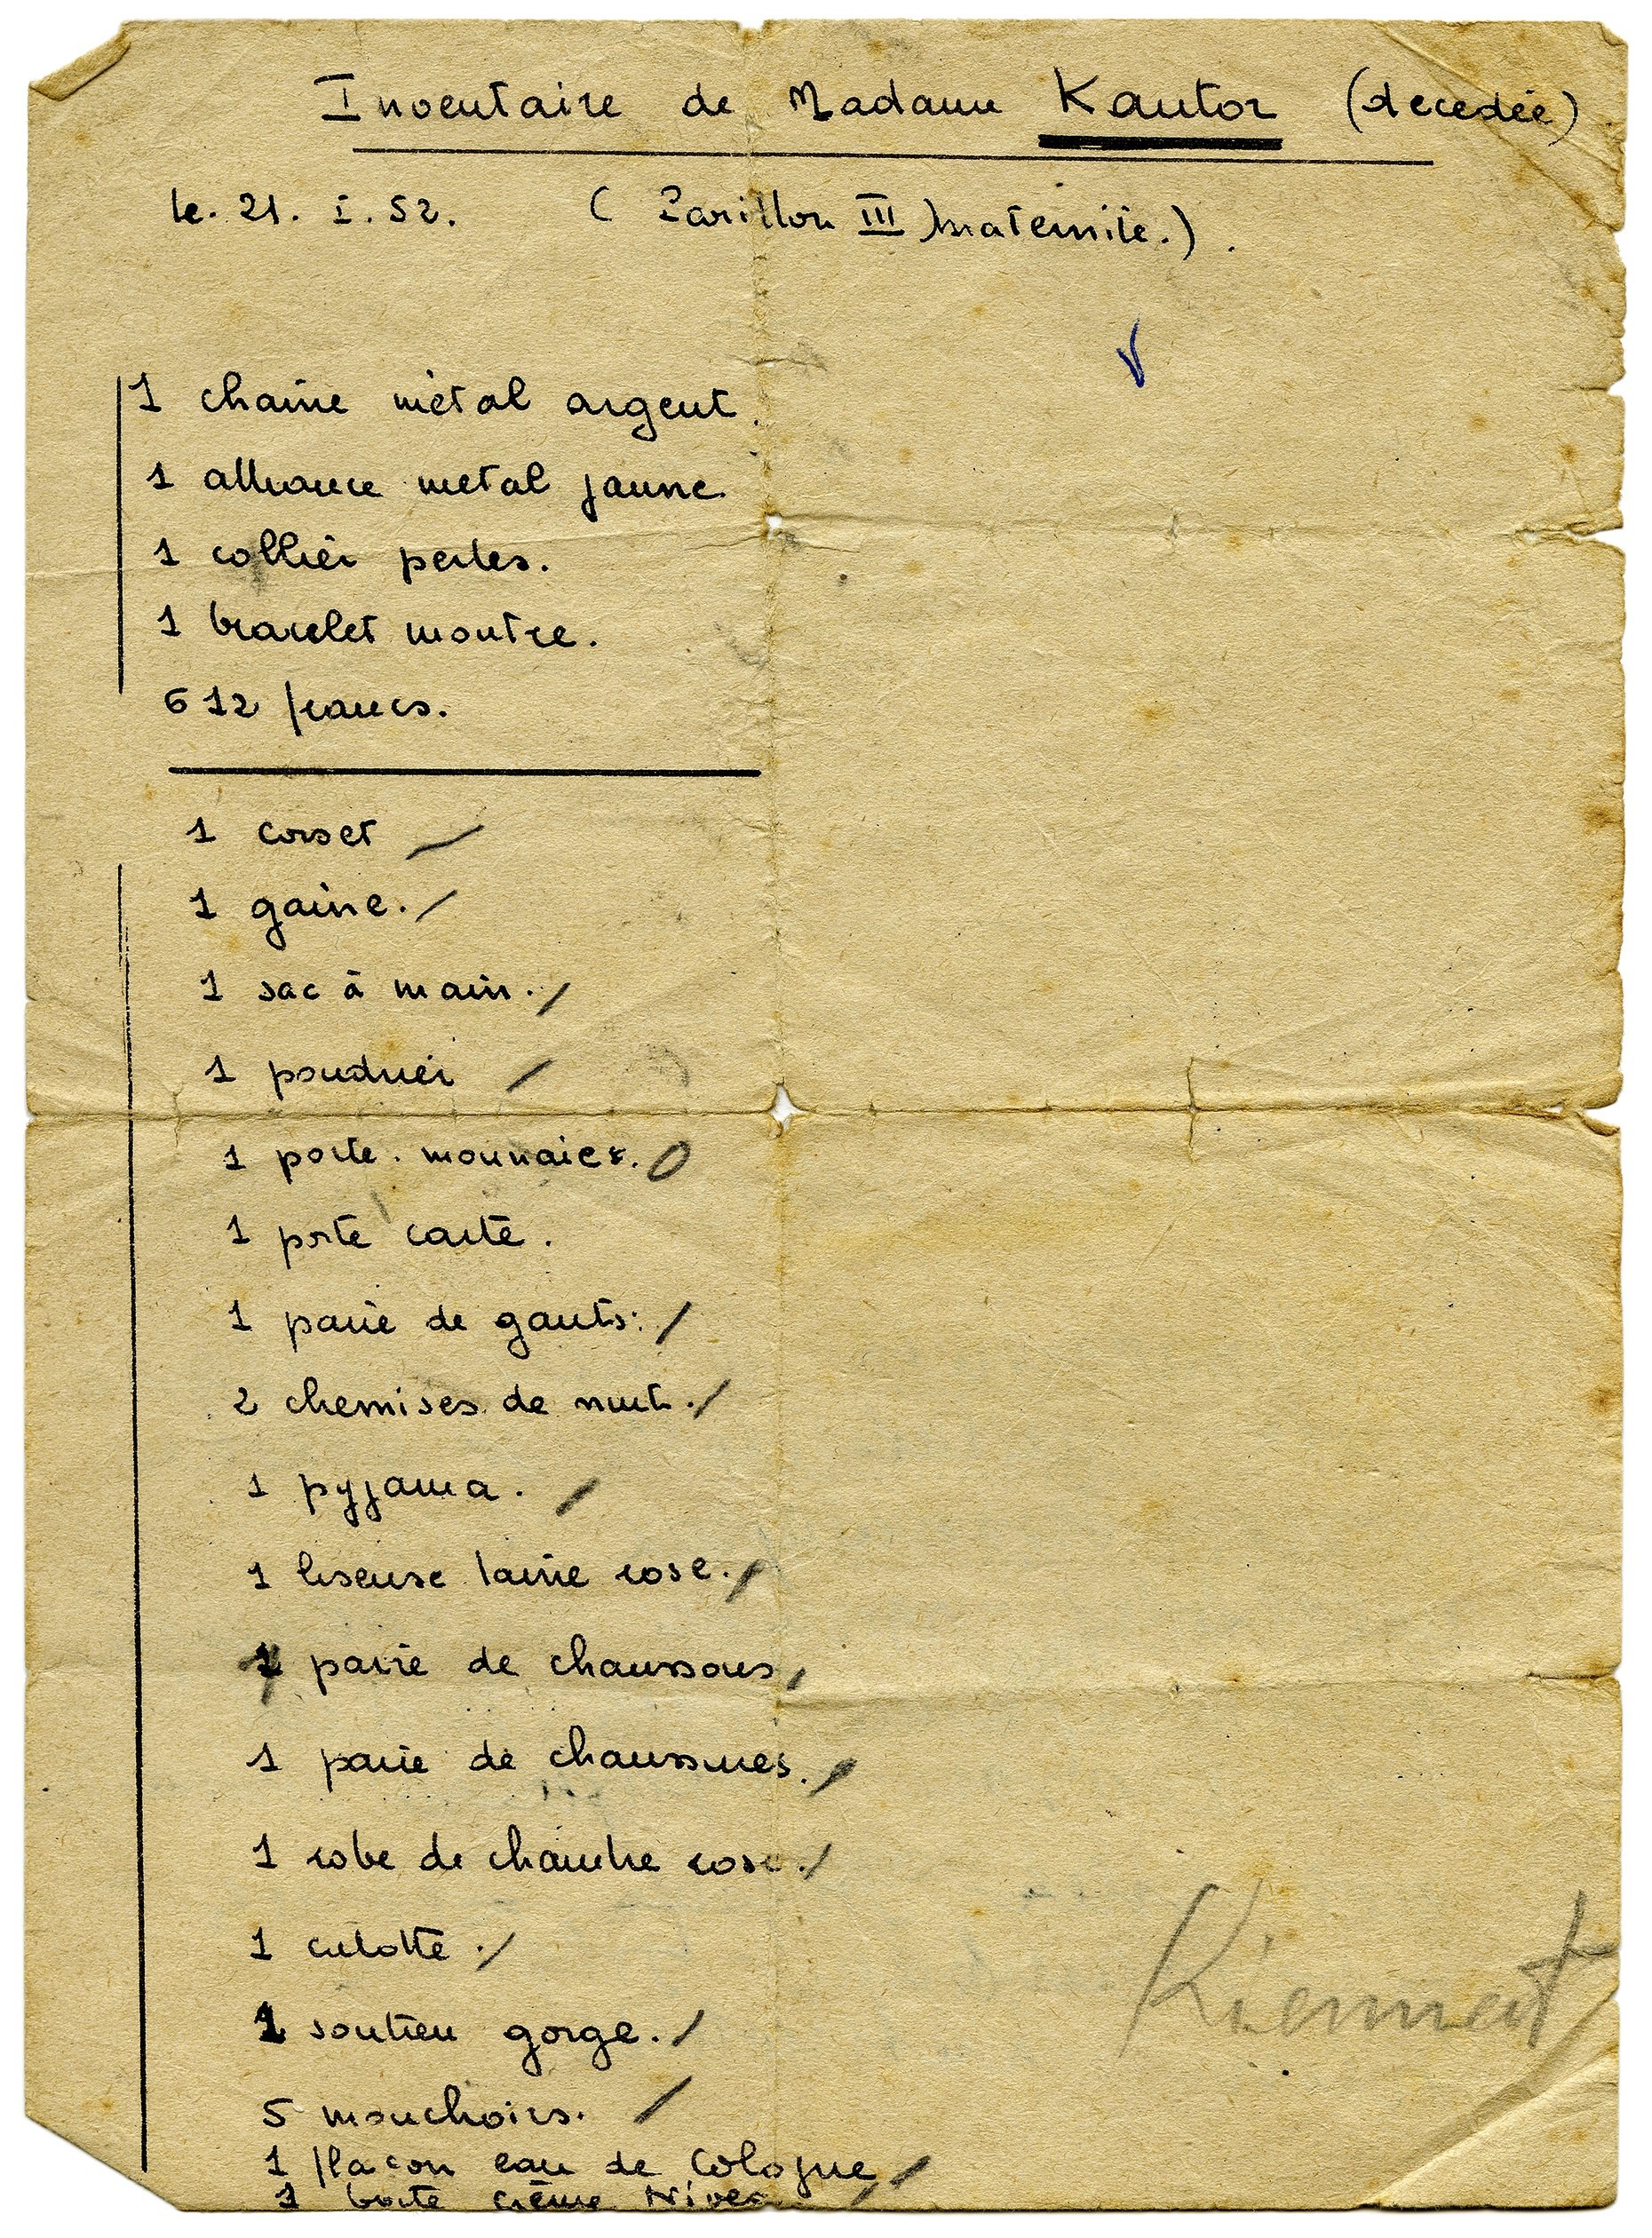 Inventaire de Madame Kantor (decedée)
le. 21. I. 52. ( Pavillon III maternité.) .
1 chaine métal argent.
1 alliance metal jaune.
1 collier perles.
1 bracelet montre.
612 francs.
1 corset
1 gaine.
1 sac à main.
1 poudrier
1 porte. monnaies.
1 porte carte.
1 paire de gants.
2 chemises de nuit.
1 pyjama.
1 liseuse laine rose.
1 paire de chaussons
1 paire de chaussures.
1 robe de chambre rose.
1 culotte.
1 soutien gorge.
5 mouchoirs.
1 flacon eau de Cologne
1 boite crème Nivea